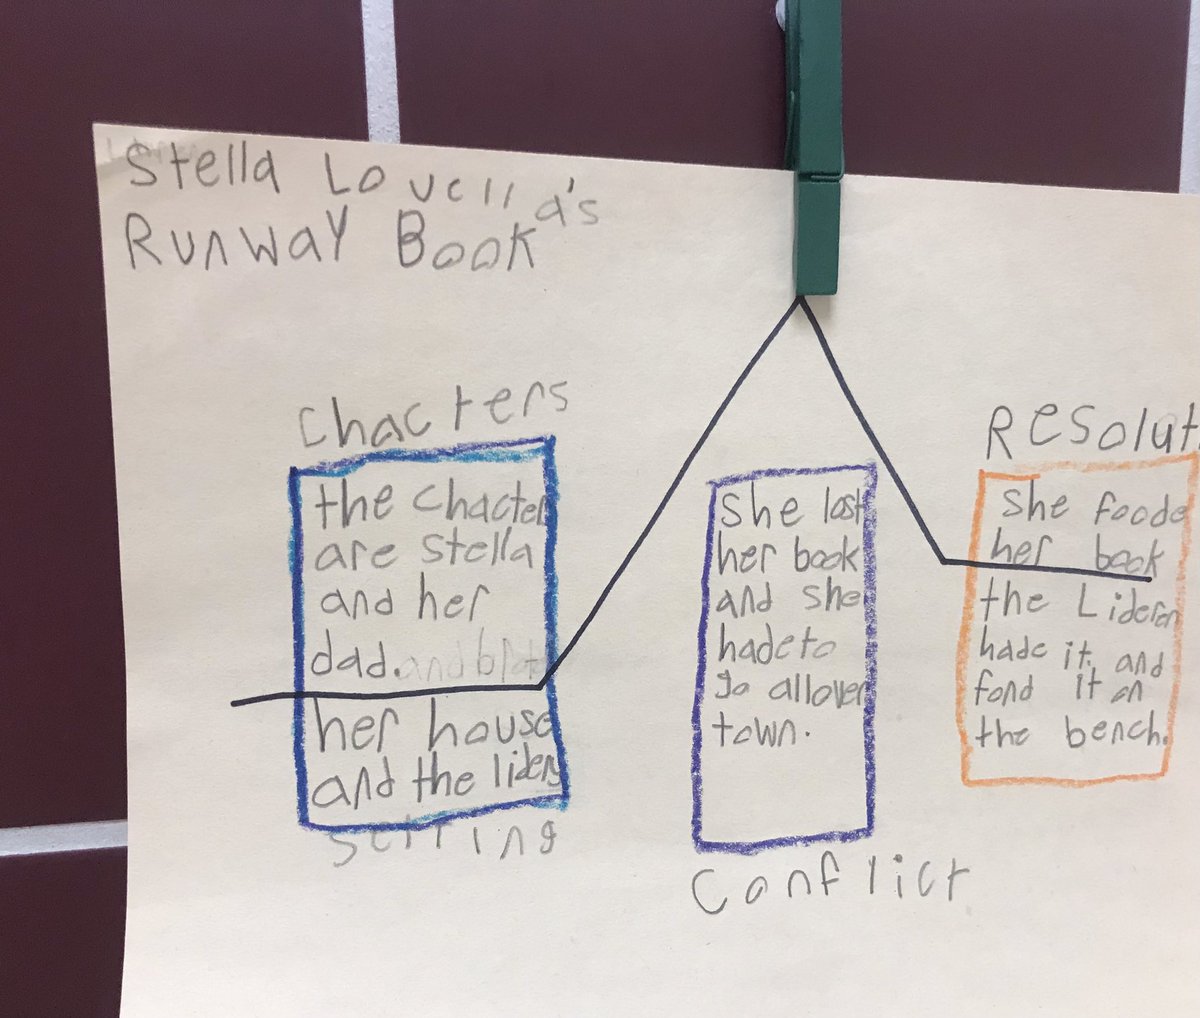 Stella Lovella's
Runway Book
Chacters
the chacter
are stella
and her
dad.
her house
and the lidery
setting
she lost
her book
and she
hade to
go allover
town.
Conflict
Resolut
she foode
her book
the Lideren
hade it. and
fond it on
the bench.